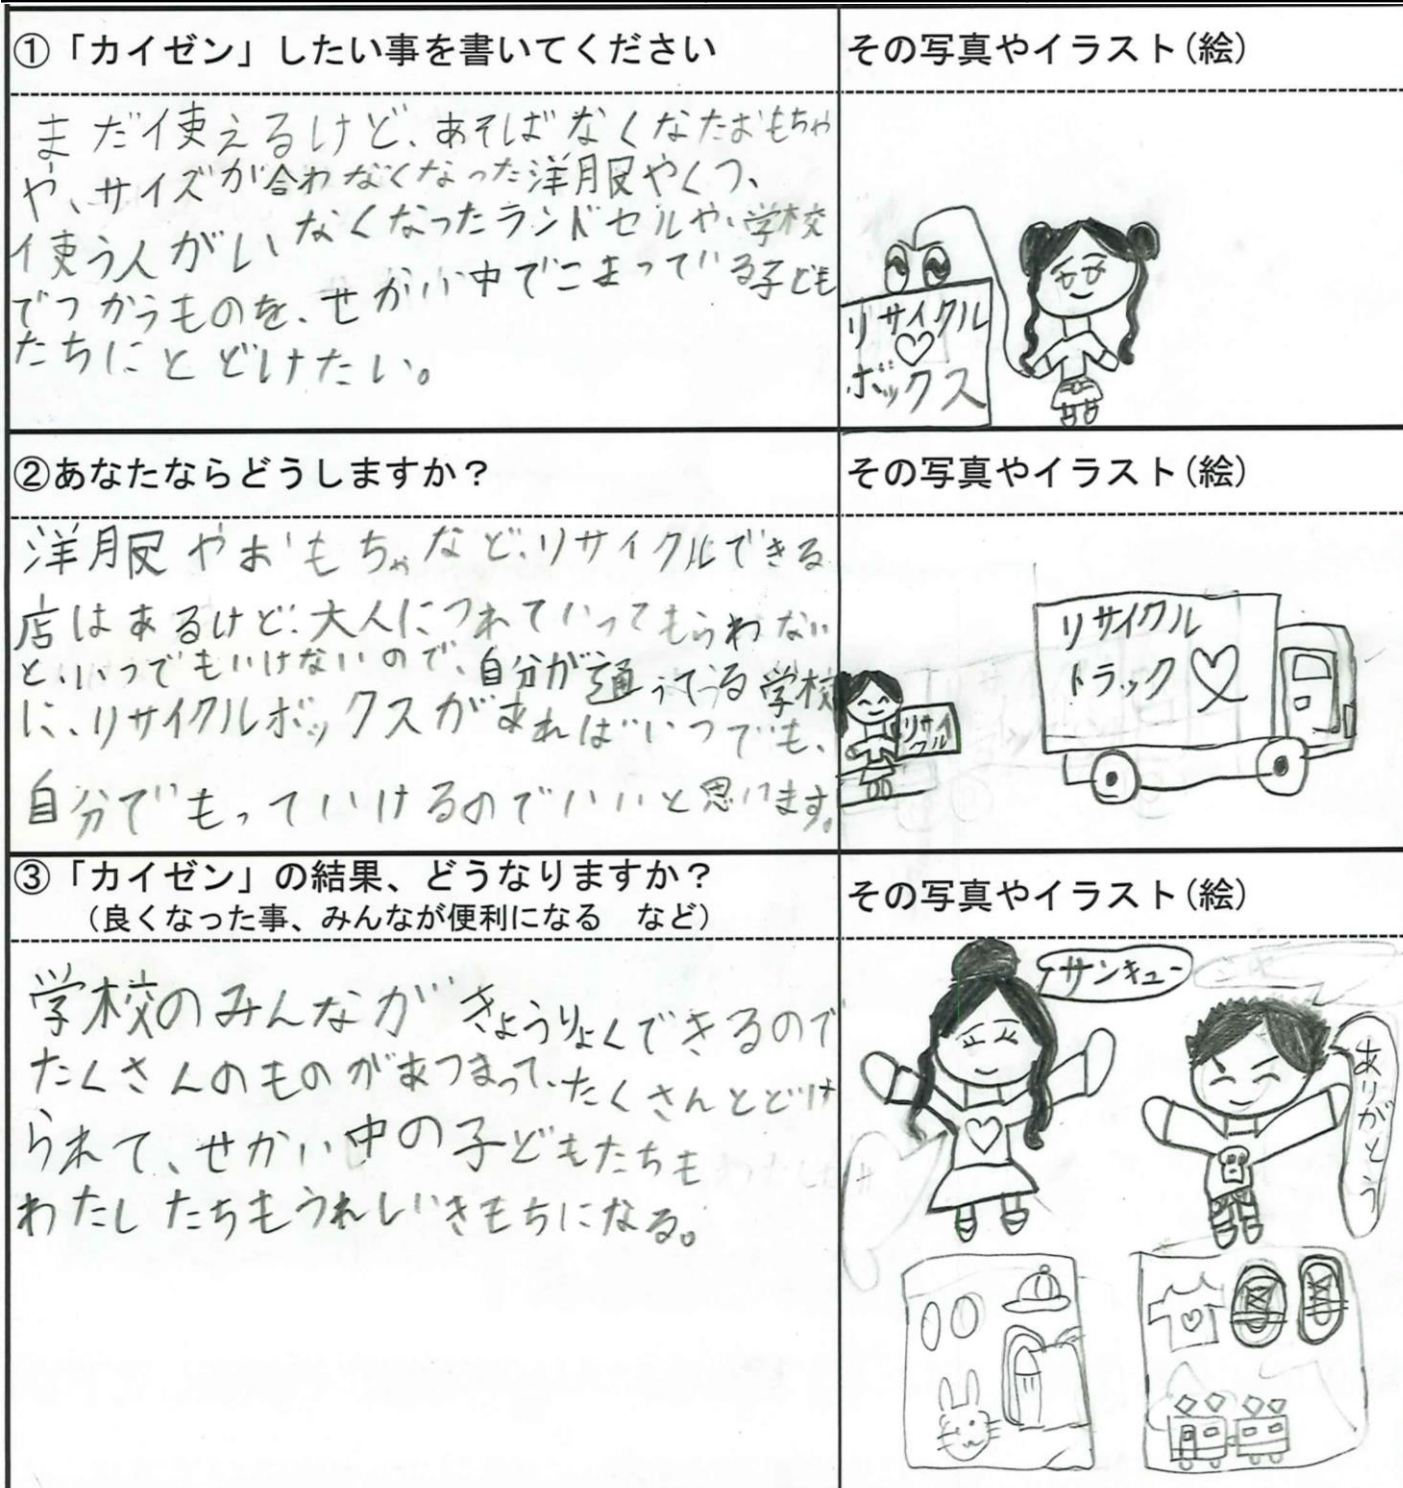 ①「カイゼン」したい事を書いてください
その写真やイラスト(絵)
まだ使えるけど、あそばなくなたおもちゃ
や、サイズが合わなくなった洋服やくつ、
使う人がいなくなったランドセルや、学校
でつかうものを、せかい中でこまっている子ども
たちにとどけたい。
リサイクル
ボックス
②あなたならどうしますか?
その写真やイラスト(絵)
洋服やおもちゃなど、リサイクルできる
店はあるけど、大人につれていってもらわない
と、いつでもいけないので、自分が通ってる学校
に、リサイクルボックスがあればいつでも、
自分でもっていけるのでいいと思います。
リサイ
クル
リサイクル
トラック
③「カイゼン」の結果、どうなりますか?
(良くなった事、みんなが便利になる など)
その写真やイラスト(絵)
学校のみんながきょうりょくできるので
たくさんのものがあつまって、たくさんとどけ
られて、せかい中の子どもたちも
わたしたちもうれしいきもちになる。
サンキュー
ありがとう